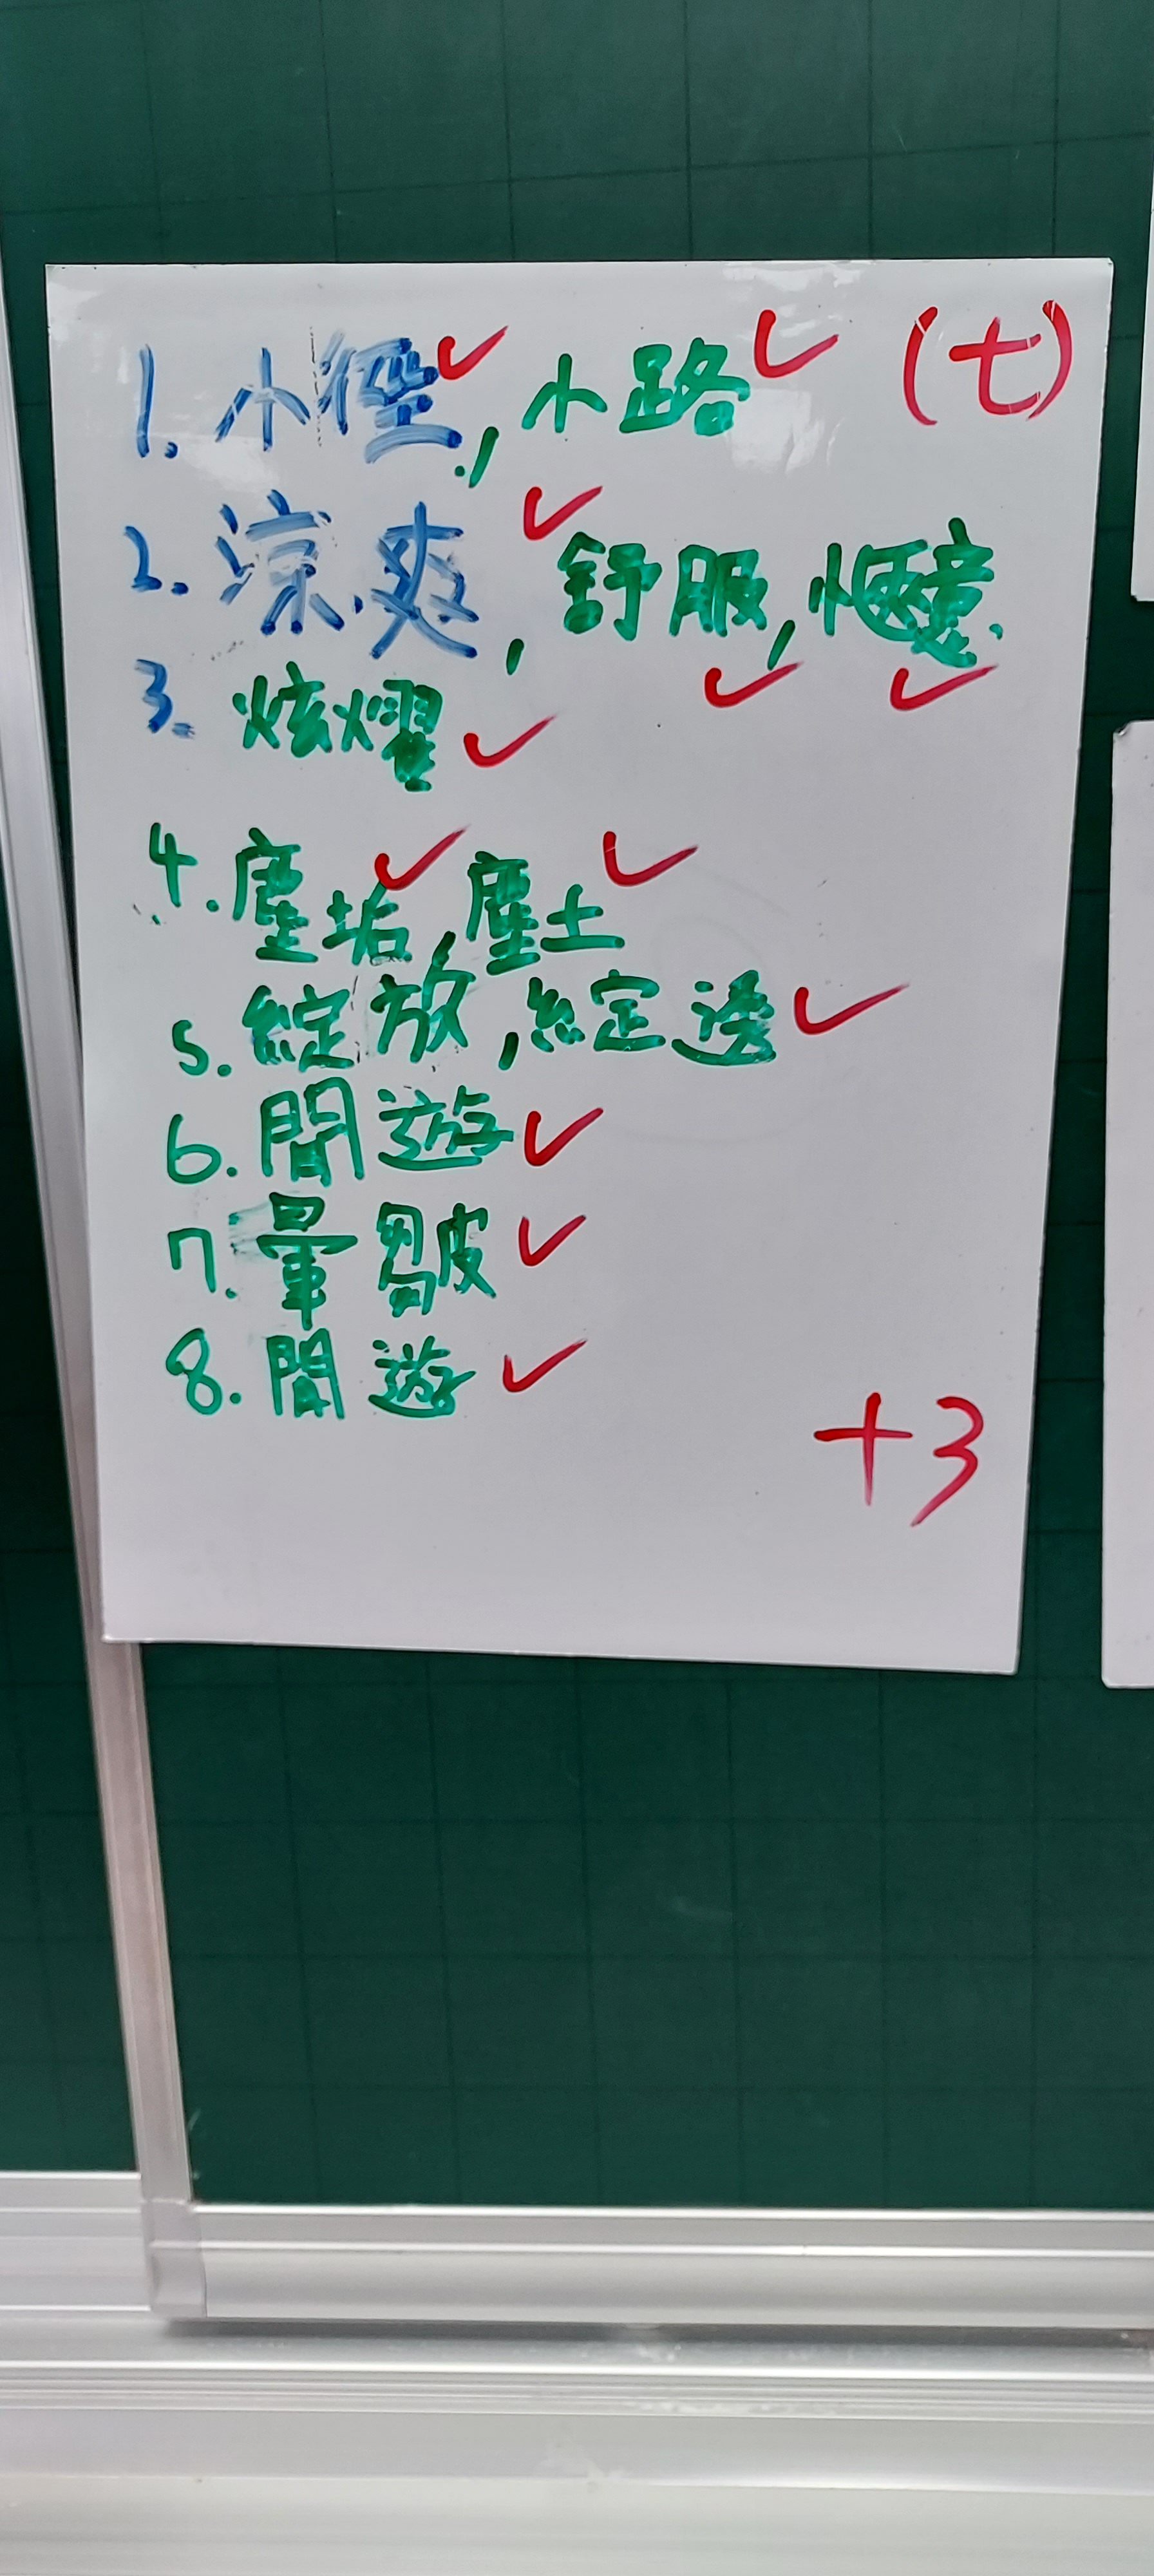 1. 小徑, 小路 (七)
2. 涼爽, 舒服, 愜意.
3. 炫耀
4. 塵垢, 塵土
5. 綻放, 綻透
6. 閒遊
7. 暈皺
8. 閒遊
+3